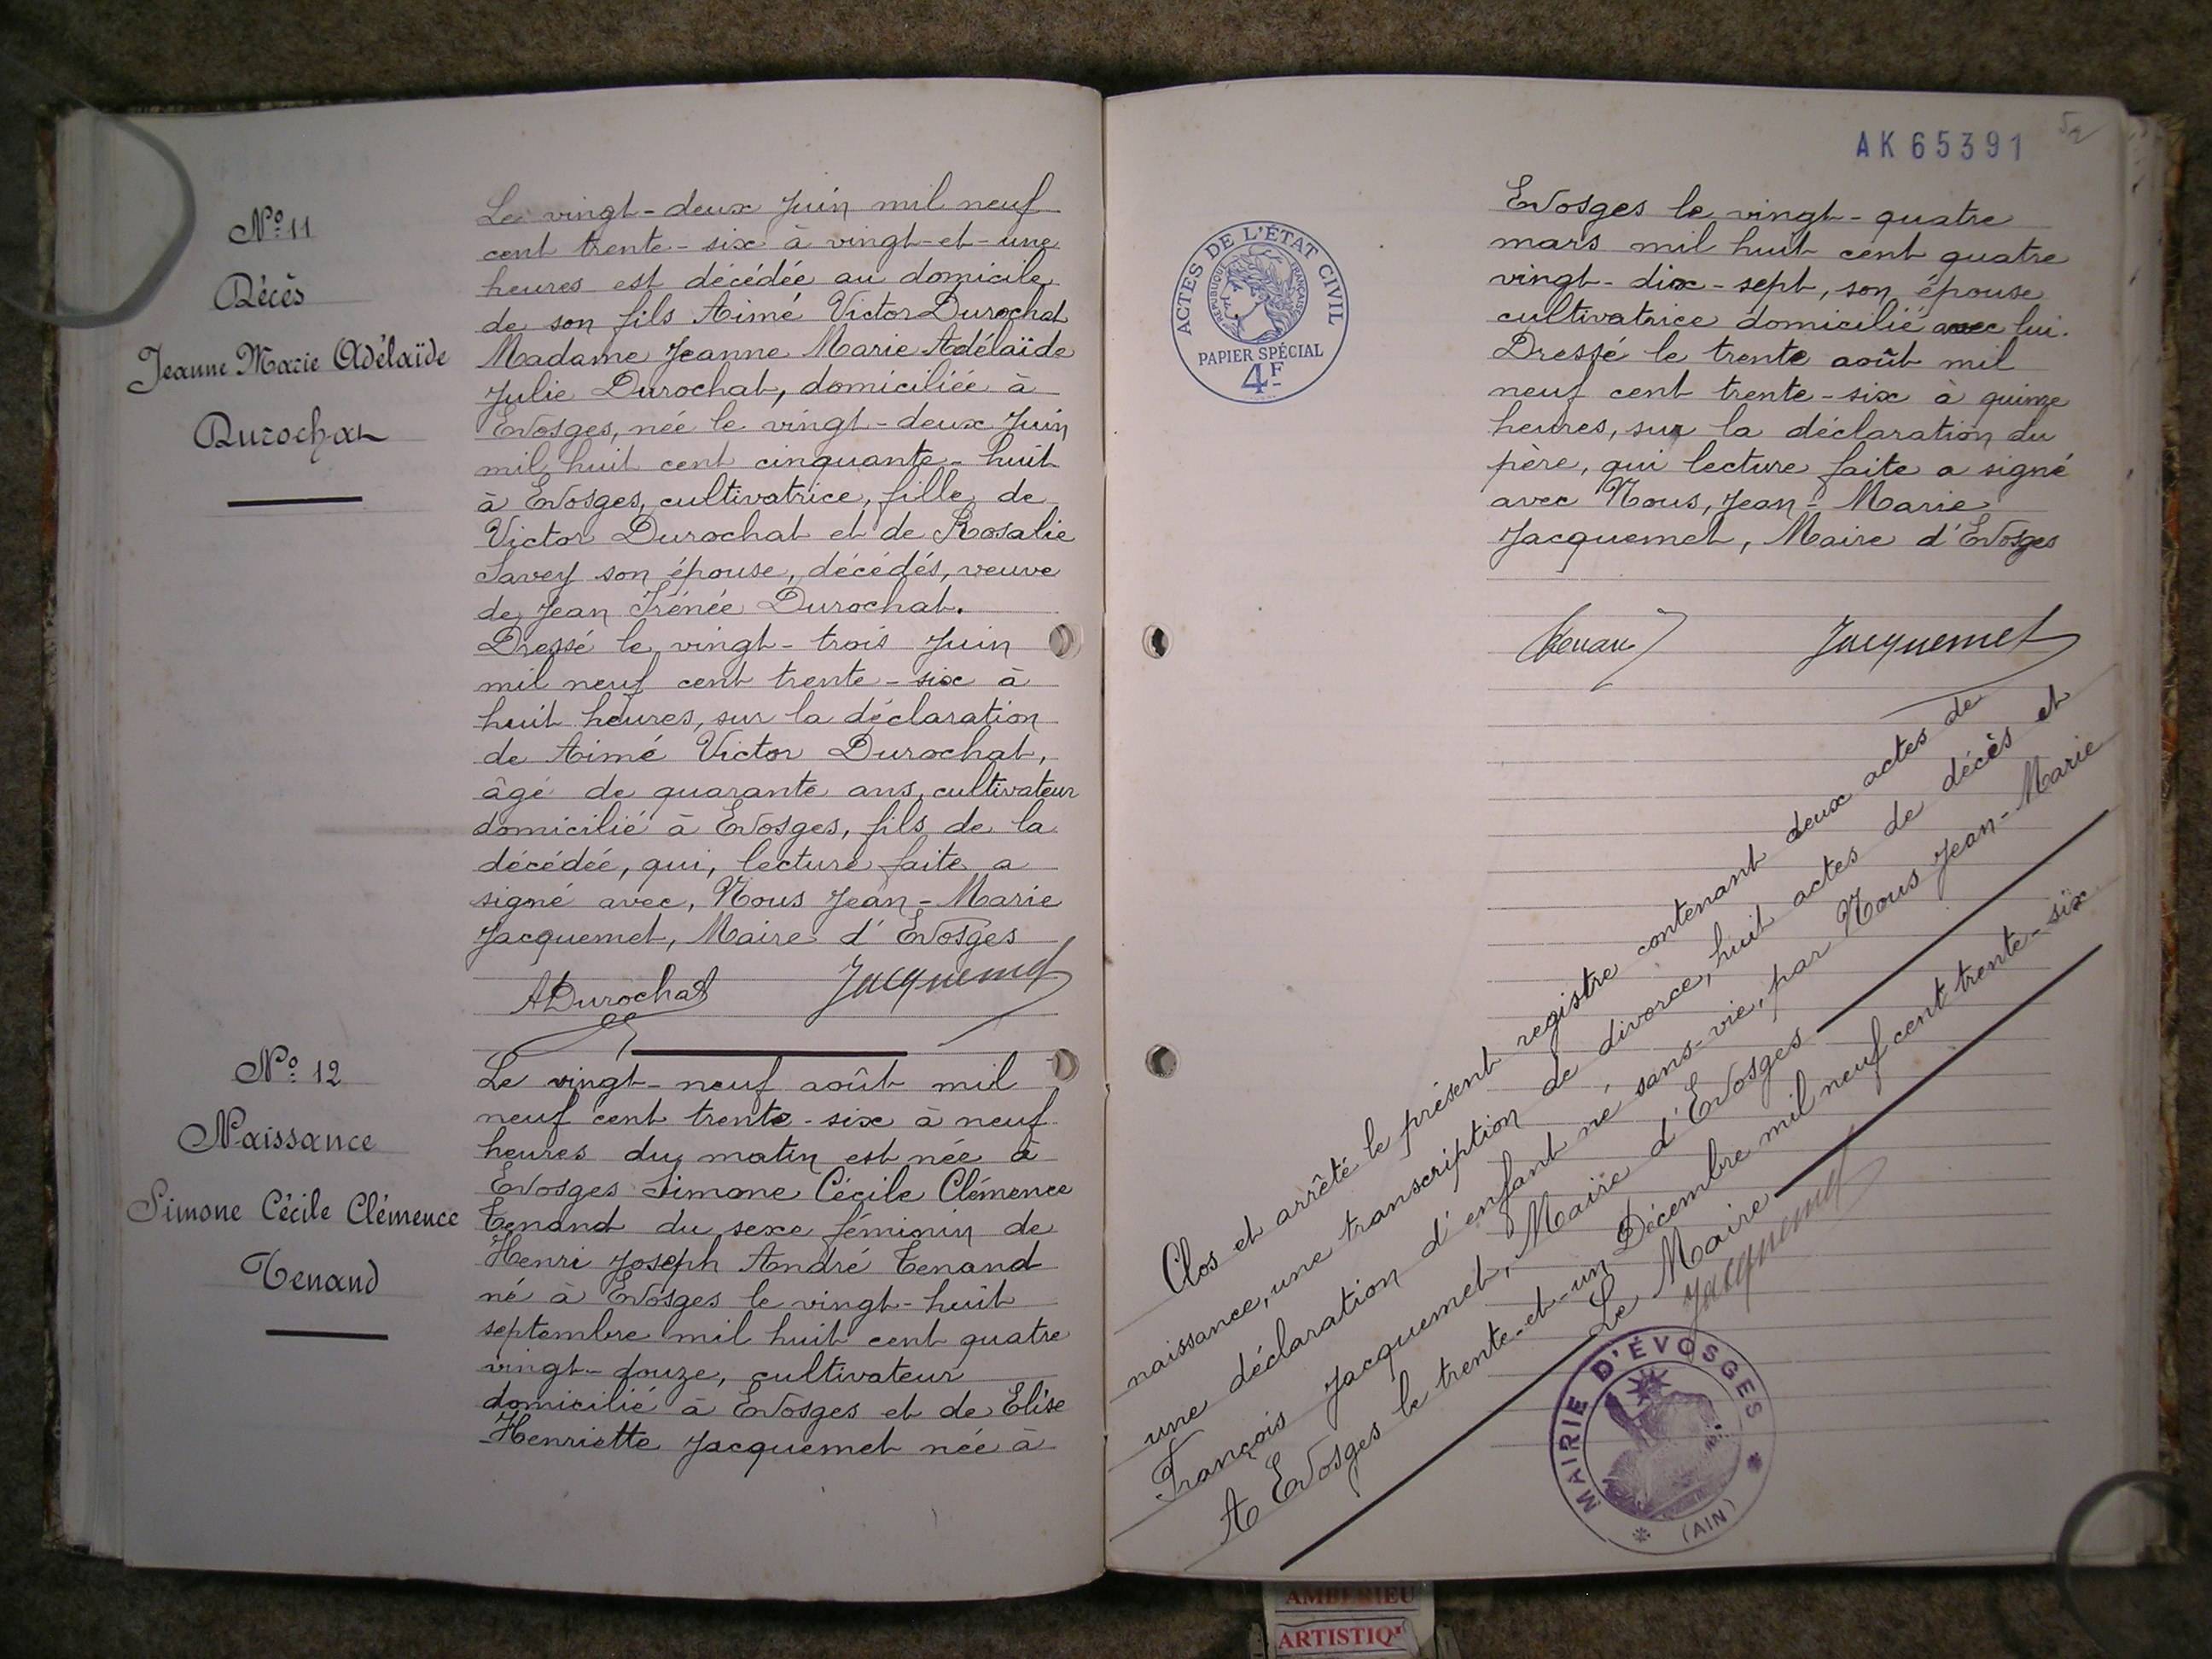 N° 11
Décès
Jeanne Marie Adélaïde
Durochat
Le vingt-deux Juin mil neuf
cent trente-six à vingt-et-une
heures est décédée au domicile
de son fils Aimé Victor Durochat
Madame Jeanne Marie Adélaïde
Julie Durochat, domiciliée à
Evosges, née le vingt-deux Juin
mil huit cent cinquante-huit
à Evosges, cultivatrice, fille de
Victor Durochat et de Rosalie
Savey son épouse, décédés, veuve
de Jean Irénée Durochat.
Dressé le vingt-trois Juin
mil neuf cent trente-six à
huit heures, sur la déclaration
de Aimé Victor Durochat,
âgé de quarante ans, cultivateur
domicilié à Evosges, fils de la
décédée, qui, lecture faite a
signé avec, Nous Jean-Marie
Jacquemet, Maire d'Evosges
ADurochat Jacquemet
N° 12
Naissance
Simone Cécile Clémence
Tenand
Le vingt-neuf août mil
neuf cent trente-six à neuf
heures du matin est née à
Evosges Simone Cécile Clémence
Tenand du sexe féminin de
Henri Joseph André Tenand
né à Evosges le vingt-huit
septembre mil huit cent quatre
vingt-douze, cultivateur
domicilié à Evosges et de Elise
Henriette Jacquemet née à
AK 65391
52
ACTES DE L'ÉTAT CIVIL
RÉPUBLIQUE FRANÇAISE
PAPIER SPÉCIAL
4F
Evosges le vingt-quatre
mars mil huit cent quatre
vingt-dix-sept, son épouse
cultivatrice domicilié avec lui.
Dressé le trente août mil
neuf cent trente-six à quinze
heures, sur la déclaration du
père, qui lecture faite a signé
avec Nous, Jean-Marie
Jacquemet, Maire d'Evosges
Jacquemet
Clos et arrêté le présent registre contenant deux actes de
naissance, une transcription de divorce, huit actes de décès et
une déclaration d'enfant né sans-vie, par Nous Jean-Marie
François Jacquemet, Maire d'Evosges
A Evosges le trente-et-un Décembre mil neuf cent trente-six
Le Maire
Jacquemet
MAIRIE D'ÉVOSGES
(AIN)
AMBERIEU
ARTISTIQ